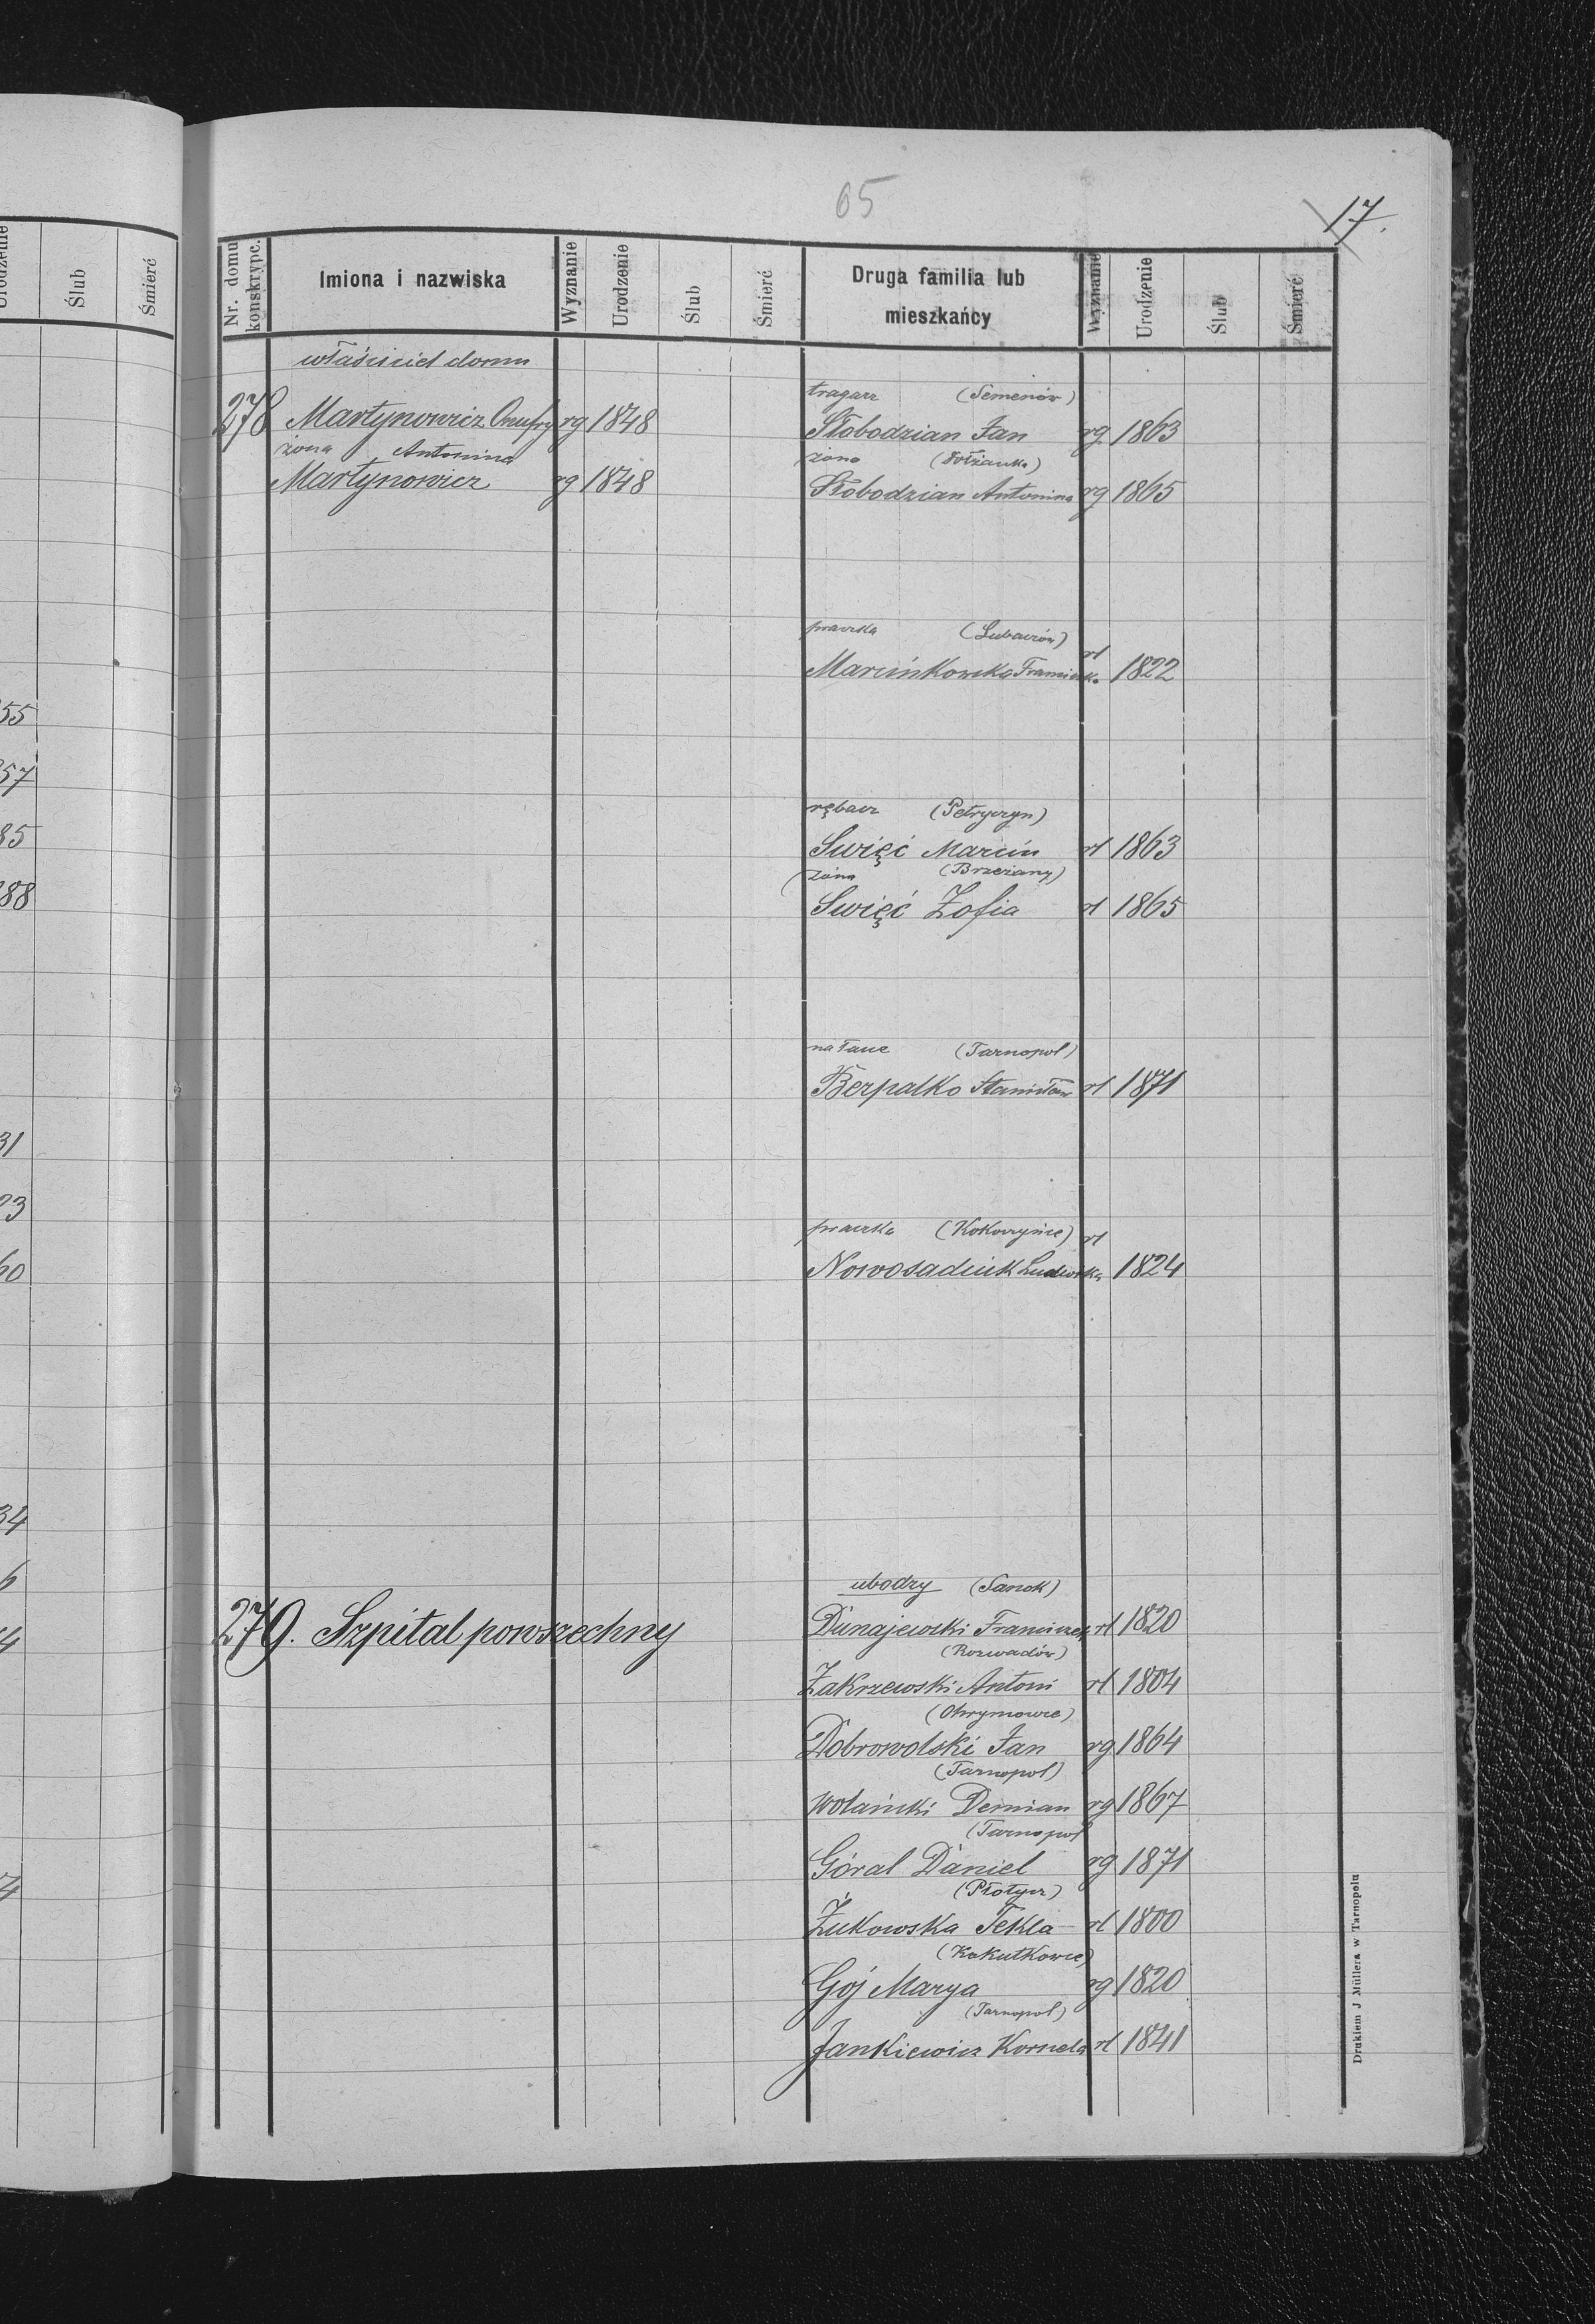 65
17.
Urodzenie Ślub Śmierć
Nr. domu konskrypc. Imiona i nazwiska Wyznanie Urodzenie Ślub Śmierć Druga familia lub mieszkańcy Wyznanie Urodzenie Ślub Śmierć
właściciel domu
tragarz (Semenów)
278 Martynowicz Onufry rg 1848
Słobodzian Jan rg 1863
żona Antonina
żona
Martynowicz rg 1848
Słobodzian Antonina rg 1865
praczka (Lubaczów)
Marcinkowska Franciszka rl 1822
55
57
rębacz (Petryczyn)
85
Święć Marcin rl 1863
żona (Brzeżany)
88
Święć Zofia rl 1865
(Tarnopol)
Berpalko Stanisław rl 1871
31
23
praczka (Kokoszyńce) rl
60
Nowosadiuk Ludwika 1824
34
6
ubodzy (Sanok)
4
279. Szpital powszechny
Dunajewski Franciszek rl 1820
(Rozwadów)
Zakrzewski Antoni rl 1804
(Ohrymowce)
Dobrowolski Jan rg 1864
(Tarnopol)
Wolański Demian rg 1867
(Tarnopol
Góral Daniel rg 1871
4
(Płotycz)
Żukowska Tekla rl 1800
(Kakutkowce)
Gój Marya rg 1820
(Tarnopol)
Jankiewicz Kornela rl 1841
Drukiem J Müllera w Tarnopolu